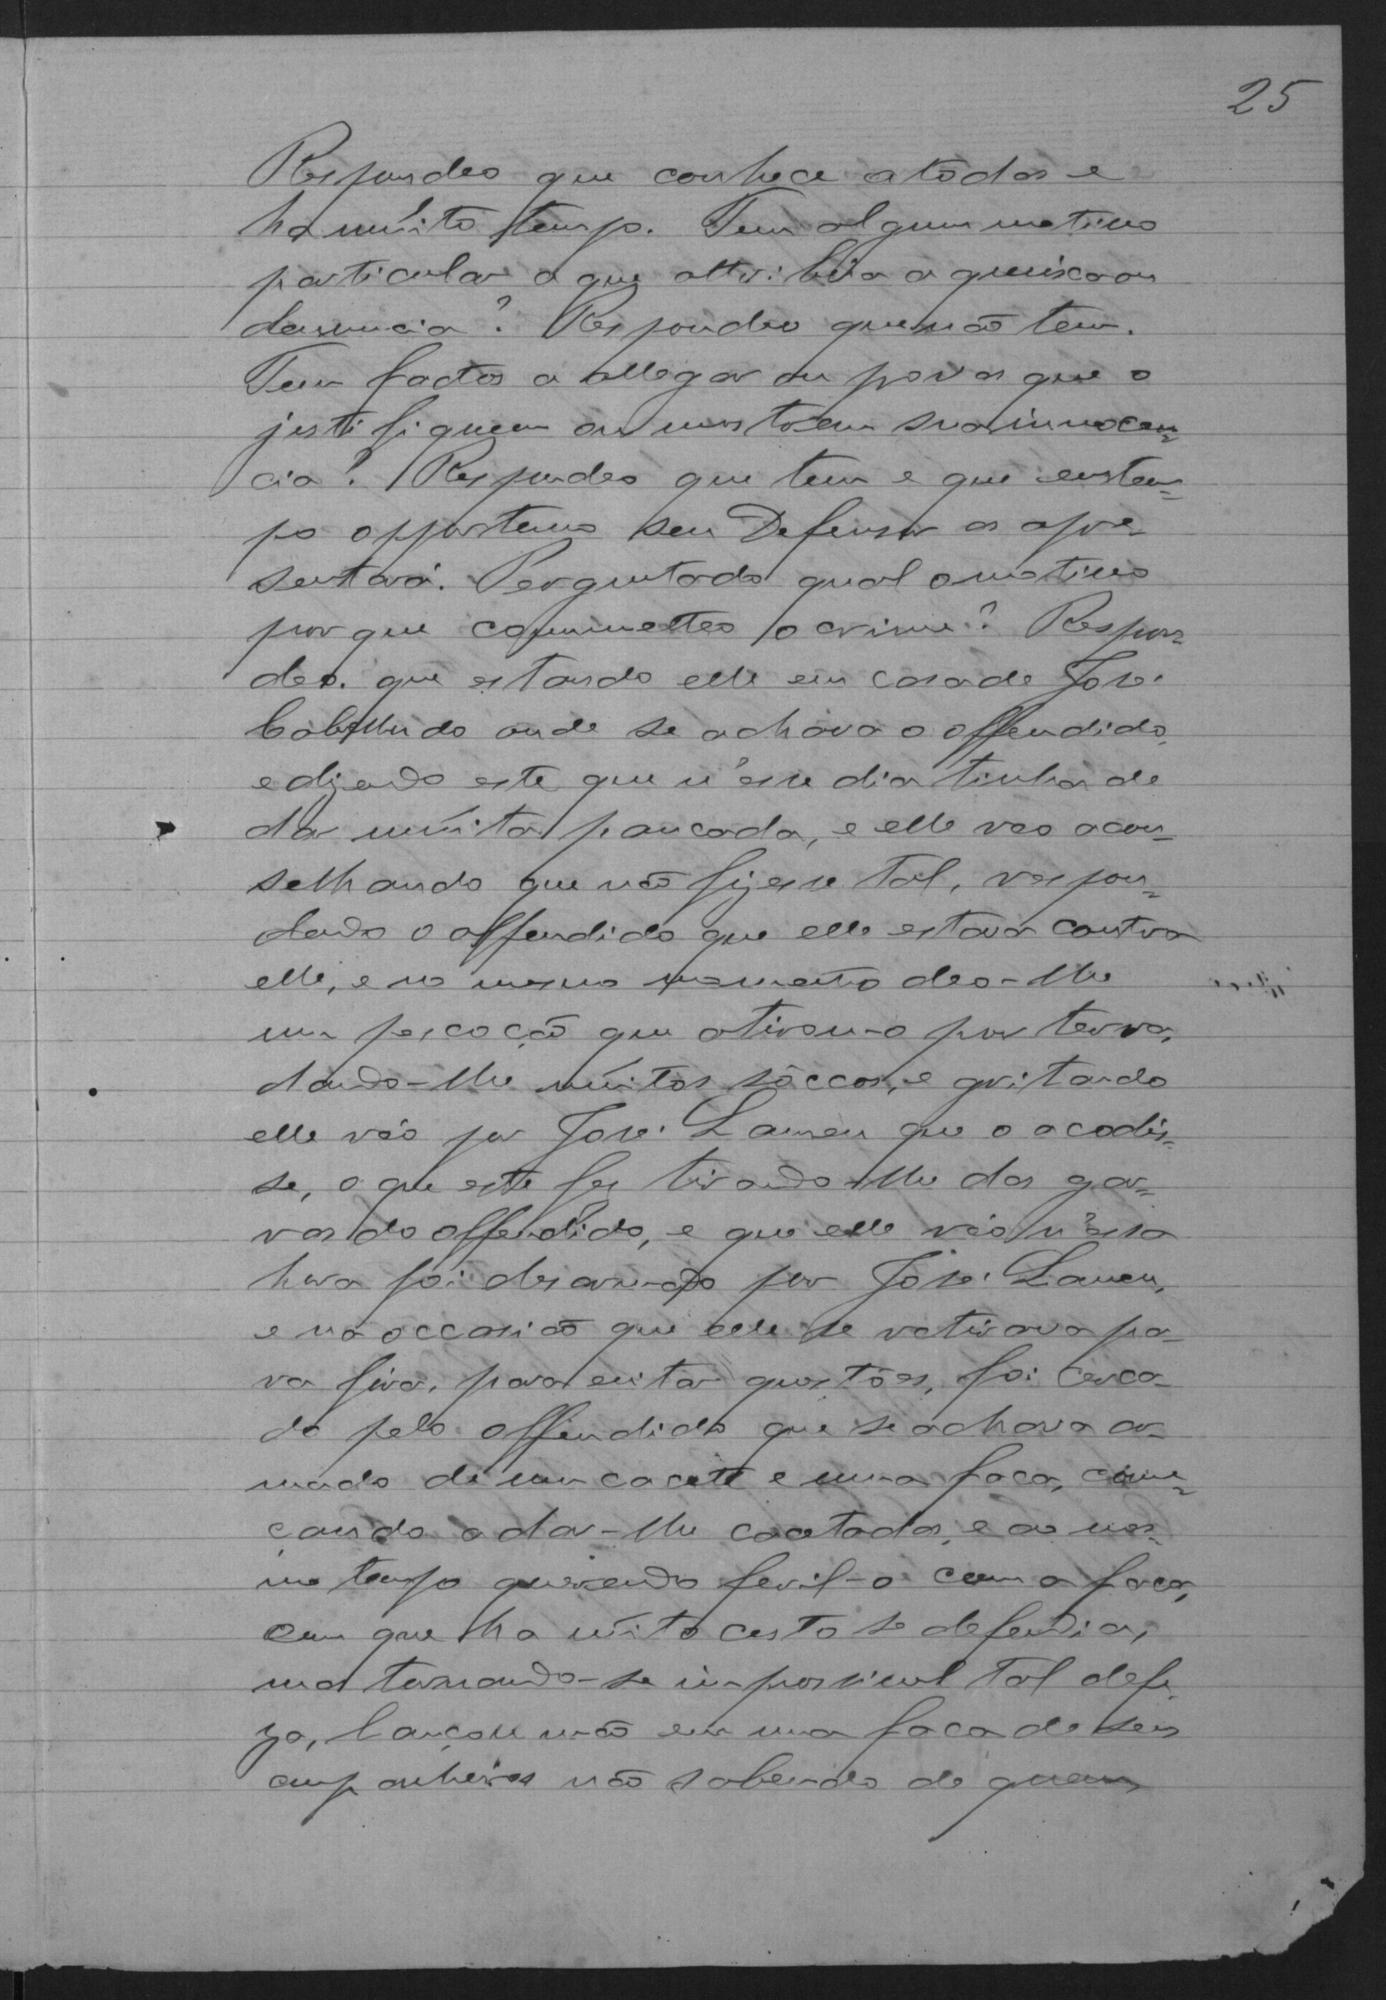 25
Respondeo que conhece a todos e
ha muito tempo. Tem algum motivo
particular a que attribúa a queixa ou
denuncia? Respondeo que não tem.
Tem factos a allegar ou provas que o
justifiquem ou mostrem sua innocen-
cia? Respondeo que tem e que em tem-
po opportuno seu Defensor as apre-
sentará. Perguntado qual o motivo
por que commetteo o crime? Respon-
deo. que estando elle em casa de José
Cabelludo onde se achava o offendido,
e dizendo este que n'esse dia tinha de
dar muita pancada, e elle reo acon-
selhando que não fizesse tal, respon-
dendo o offendido que elle estava contra
elle, e no mesmo momento deo-lhe
um pescoção que atirou-o por terra,
dando-lhe muitos sôccos, e gritando
elle réo por José Lauren que o acodis-
se, o que este fes tirando-lhe das gar-
ras do offendido, e que elle réo n'essa
hora foi desarmado por José Lauren,
e na occasião que elle se retirava pa-
ra fora, para evitar questões, foi cerca-
do pelo offendido que se achava ar-
mado de um cacete e uma faca, come-
çando a dar-lhe cacetadas, e ao mes-
mo tempo querendo feril-o com a faca,
em que ha muito custo se defendia,
mas tornando-se impossivel tal defe
za, lançou mão em uma faca de seus
companheiros não sabendo de quem